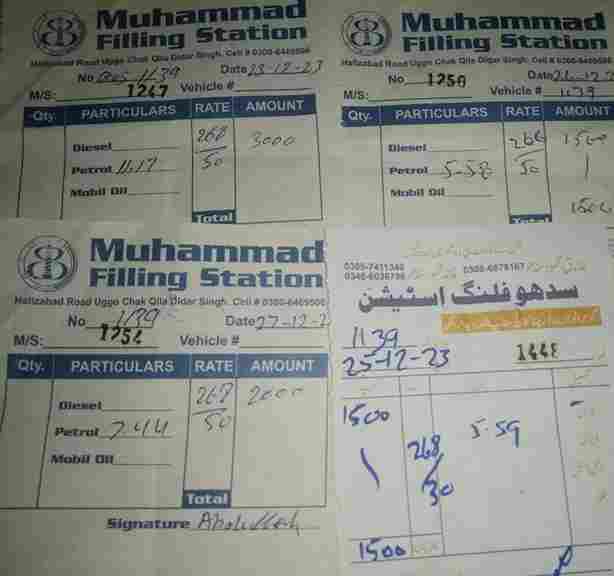 Muhammad
Filling Station
Hafizabad Road Uggo Chak Qila Didar Singh. Cell # 0300-6469506
No 1139 Date 23-12-23
M/S: 1247 Vehicle #
Qty. PARTICULARS RATE AMOUNT
Diesel 268 3000
Petrol 11.17 50
Mobil Oil
Total
Muhammad
Filling Station
Hafizabad Road Uggo Chak Qila Didar Singh. Cell # 0300-64695
No 1250 Date
M/S: Vehicle # 1139
Qty. PARTICULARS RATE AMOUNT
Diesel 268 1500
Petrol 5-58 50
Mobil Oil 1500
Total
Muhammad
Filling Station
Hafizabad Road Uggo Chak Qila Didar Singh. Cell # 0300-6469506
No 1139 Date 27-12-2
M/S: 1254 Vehicle #
Qty. PARTICULARS RATE AMOUNT
Diesel 268 2000
Petrol 7.44 50
Mobil Oil
Total
Signature Abdullah
سدھو فلنگ اسٹیشن
1139
25-12-23 1448
1500 5.59
268
30
1500